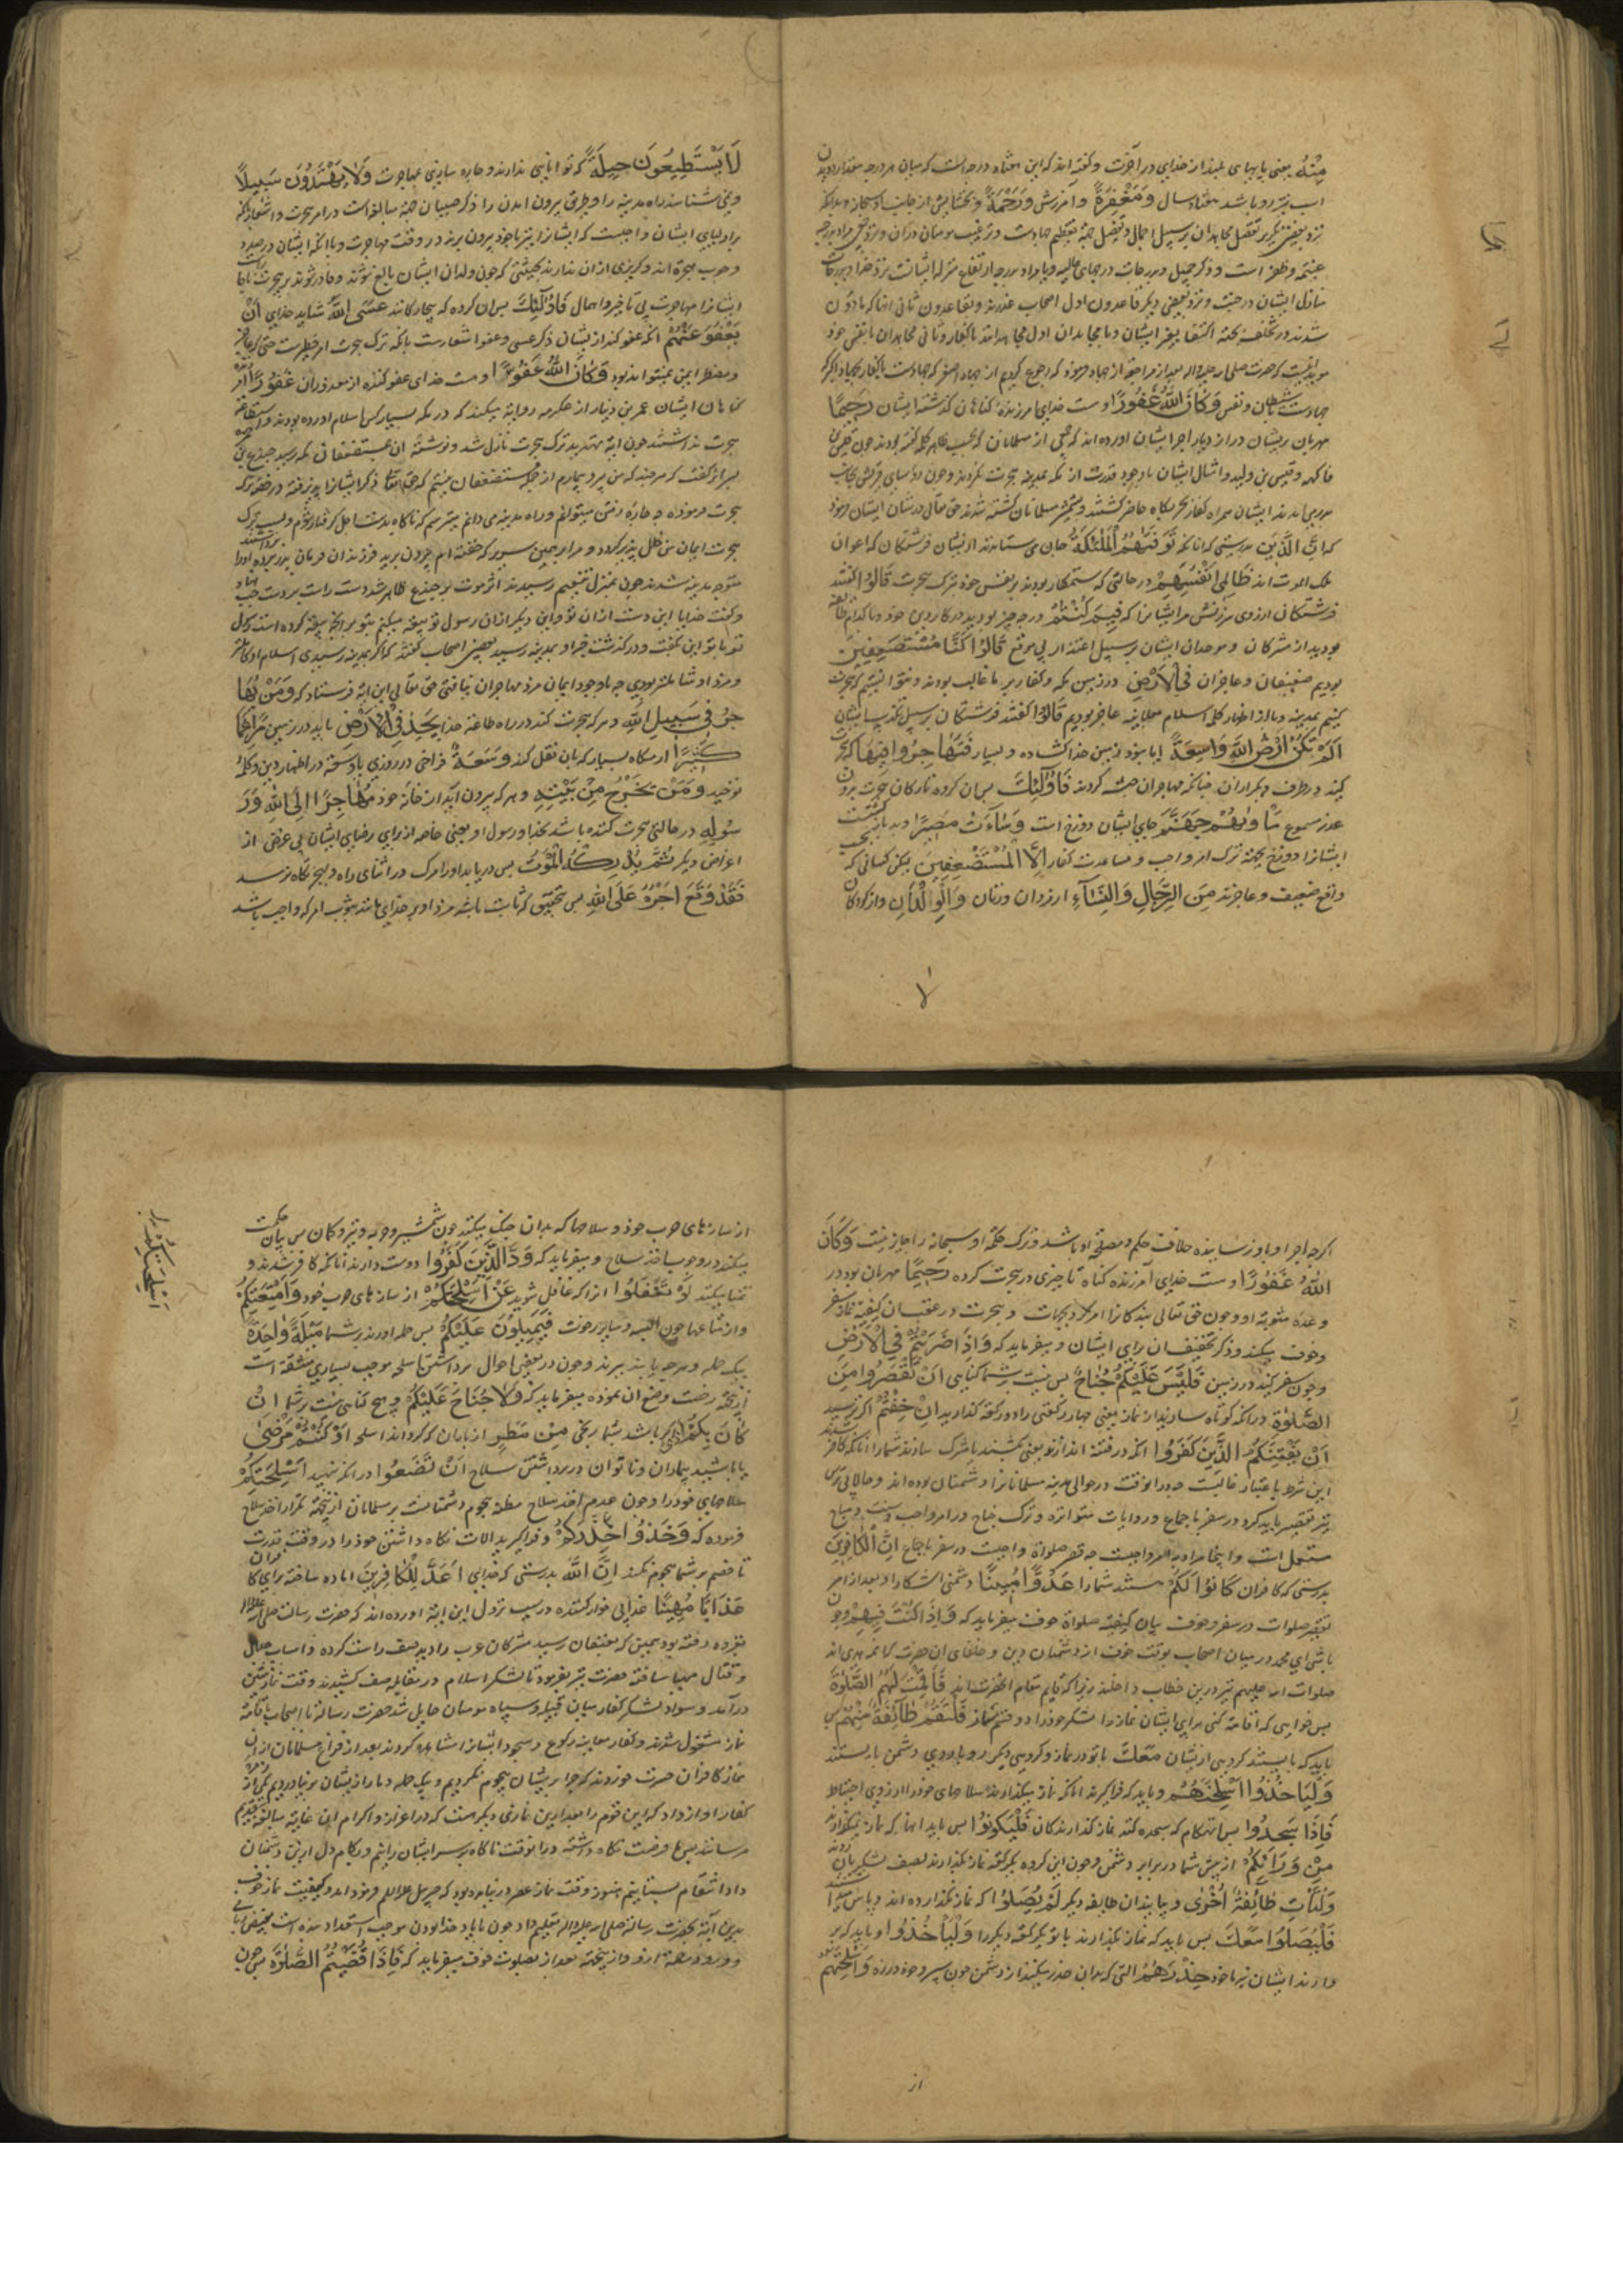 مِنْهُ یعنی پایهای بلند از خدای در آخرت و گفته اند که این هفتاد درجه است که میان هر درجه مقدار دویدن
اسب تیزرو باشد هفتاد سال وَمَغْفِرَةً و آمرزش وَرَحْمَةً و بخشایش از جانب او سبحانه و بدانکه
نزد بعضی تکریر تفضیل مجاهدان بر سبیل اجمال و تفصیل جهة تعظیم جهادست و ترغیب مومنان دران و نزد بعضی مراد بدرجه
غنیمة و ظفر است و ذکر جمیل و بدرجات درجهای عالیه و یا مراد بدرجه ارتفاع منزله ایشانست نزد خدا و بدرجات
منازل ایشان در جنت و نزد بعضی دیگر قاعدون اول اصحاب عذرند و قاعدون ثانی آنها که ماذون
شدند در تخلف بجهة اکتفا بغیر ایشان و یا مجاهدان اول مجاهدانند با کفار و ثانی مجاهدان با نفس خود
جهادست با شیطان و نفس وَكَانَ اللّٰهُ غَفُورًا و هست خدای آمرزنده کناهان کذشته ایشان رَحِيمًا
مهربان بریشان در ازدیاد اجر ایشان آورده اند که جمعی از مسلمانان که بحسب ظاهر کلمه گفته بودند چون قیس بن
فاکهه و قیس بن ولید و امثال ایشان با وجود قدرت از مکه بمدینه هجرت نکردند و چون رؤسای قریش بجانب
بدر می آمدند ایشان همراه کفار بحربگاه حاضر گشتند و بشمشیر مسلمانان کشته شدند حق تعالی در شان ایشان فرمود
که اِنَّ الَّذِينَ بدرستی که آنانکه تَوَفّٰهُمُ الْمَلٰئِكَةُ جان می ستانند از ایشان فرشتگان که اعوان
ملک الموت اند ظَالِمِي اَنْفُسِهِمْ در حالتی که ستمکار بودند بر نفس خود بترک هجرت قَالُوا گفتند
فرشتکان از روی سرزنش مر ایشانرا که فِيمَ كُنْتُمْ در چه چیز بودید در کار دین خود و با کدام طایفه
بودید از مشرکان و موحدان ایشان بر سبیل اعتذار بی موقع قَالُوا كُنَّا مُسْتَضْعَفِينَ
بودیم ضعیفان و عاجزان فِي الْاَرْضِ در زمین مکه و کفار بر ما غالب بودند و نتوانستیم که هجرت
کنیم بمدینه و یا از اظهار کلمه اسلام بعلانیه عاجز بودیم قَالُوا گفتند فرشتکان بر سبیل تکذیب ایشان
اَلَمْ تَكُنْ اَرْضُ اللّٰهِ وَاسِعَةً آیا نبود زمین خدا گشاده و بسیار فَتُهَاجِرُوا فِيهَا که هجرت
کنید در طرف دیگر ازان چنانکه مهاجران حبشه کردند فَاُولٰئِكَ پس آن گروه تارکان هجرت بدون
عذر مسموع مَاْوٰىهُمْ جَهَنَّمُ جای ایشان دوزخ است وَسَاءَتْ مَصِيرًا و بد بازگشتست
ایشانرا دوزخ بجهة ترک امر واجب و مساعدت کفار اِلَّا الْمُسْتَضْعَفِينَ لیکن کسانی که
واقع ضعیف و عاجزند مِنَ الرِّجَالِ وَالنِّسَاءِ از مردان و زنان وَالْوِلْدَانِ و از کودکان
لا
لَا يَسْتَطِيعُونَ حِيلَةً که توانایی ندارند و چاره سازی مهاجرت وَلَا يَهْتَدُونَ سَبِيلًا
و نمی شناسند راه مدینه را و طریق بیرون آمدن را ذکر صبیان جهة مبالغه است در امر هجرت و اشعار بانکه
بر اولیای ایشان واجبست که ایشانرا نیز با خود بیرون برند در وقت مهاجرت و یا آنکه ایشان در صدد
وجوب هجرة اند و گریزی از آن ندارند بحیثیتی که چون ولدان ایشان بالغ شوند و قادر شوند بر هجرت
ایشانرا مهاجرت بی تاخیر و اهمال فَاُولٰئِكَ پس آن گروه که بیچارگانند عَسَى اللّٰهُ شاید خدای اَنْ
يَعْفُوَ عَنْهُمْ آنکه عفو کند از ایشان ذکر عسی و عفو اشعارست بانکه ترک هجرت امر خطیرست
و مضطر ایمن نمیتواند بود وَكَانَ اللّٰهُ عَفُوًّا و هست خدای عفو کننده از معذوران غَفُورًا آمرزنده
کناهان ایشان عمر بن دینار از عکرمه روایة میکند که در مکه بسیار کس اسلام آورده بودند و استطاعة
هجرت نداشتند چون آیة تهدید ترک هجرت نازل شد و نوشته آن بمستضعفان مکه رسید جندع بن
هجرت فرموده چه چاره رفتن میتوانم و راه مدینه می دانم میترسم که ناگاه بدست اجل گرفتار شوم و بسبب ترک
هجرت ایمان من خلل پذیر گردد و مرا بر همین سریر که خفته ام بیرون برید فرزندان فرمان پدر برده او را
متوجه مدینه شدند چون بمنزل تنعیم رسیدند اثر موت بر جندع ظاهر شد دست راست بر دست چپ نهاد
و گفت خدایا این دست از آن تو و این دیگر از آن رسول تو بیعة میکنم بتو بر آنچه بیعة کرده است رسول
تو با تو این بگفت و درگذشت خبر او بمدینه رسید بعضی اصحاب گفتند که اگر بمدینه رسیدی اسلام او کاملتر
و مزد او شاملتر بودی چه با وجود ایمان مزد مهاجران نیافت حق تعالی این آیة فرستاد که وَمَنْ يُهَا
جِرْ فِي سَبِيلِ اللّٰهِ و هر که هجرت کند در راه طاعة خدا يَجِدْ فِي الْاَرْضِ بیابد در زمین مُرَاغَمًا
كَثِيرًا آرامگاه بسیار که بآن نقل کند وَسَعَةً فراخی در روزی یا وسعة در اظهار دین و کلمه
توحید وَمَنْ يَخْرُجْ مِنْ بَيْتِهِ و هر که بیرون آید از خانه خود مُهَاجِرًا اِلَى اللّٰهِ وَرَ
سُولِهِ در حالتی هجرت کننده باشد بخدا و رسول او یعنی خاصه از برای رضای ایشان بی غرضی از
اغراض دیگر ثُمَّ يُدْرِكْهُ الْمَوْتُ پس دریابد او را مرگ در اثنای راه و بهجرتگاه نرسد
فَقَدْ وَقَعَ اَجْرُهُ عَلَى اللّٰهِ پس بتحقیق که ثابت باشد مزد او بر خدای مانند ثبوت امر که واجب باشد
اگرچه اجر او باو نرسانیده خلاف حکم و مصلحة او باشد و ترک حکمة او سبحانه را جایز نیست وَكَانَ
اللّٰهُ غَفُورًا و هست خدای آمرزنده گناه تاخیری در هجرت کرده رَحِيمًا مهربان بود در
وعده مثوبة او و چون حق تعالی بندگانرا امر کرد بجهاد و هجرت در عقب آن کیفیة نماز سفر
و خوف میکند و ذکر تخفیف آن برای ایشان و میفرماید که وَاِذَا ضَرَبْتُمْ فِي الْاَرْضِ
و چون سفر کنید در زمین فَلَيْسَ عَلَيْكُمْ جُنَاحٌ پس نیست بر شما گناهی اَنْ تَقْصُرُوا مِنَ
الصَّلٰوةِ در آنکه کوتاه سازید از نماز یعنی چهار رکعتی را دو رکعة گذارید اِنْ خِفْتُمْ اگر ترسید
اَنْ يَفْتِنَكُمُ الَّذِينَ كَفَرُوا آنکه در فتنه اندازند یعنی بکشند یا مشرک سازند شمارا آنانکه کافر شدند
این شرط باعتبار غالبست چه در آنوقت در حوالی مدینه مسلمانانرا دشمنان بوده اند و حالا بی ترس
نیز تقصیر باید کرد در سفر باجماع و روایات متواتره و ترک جناح در امر واجب و سنت و مباح
مستعمل است و اینجا مراد امر واجبست چه قصر صلواة واجبست در سفر باجماع اِنَّ الْكَافِرِينَ
بدرستی که کافران كَانُوا لَكُمْ هستند شمارا عَدُوًّا مُبِينًا دشمنی آشکارا و بعد از امر
بقصر صلوات در سفر و خوف بیان کیفیة صلواة خوف میفرماید که وَاِذَا كُنْتَ فِيهِمْ و چون
باشی ای محمد در میان اصحاب بوقت خوف از دشمنان دین و خلفای آن حضرت که ائمه هدی اند
صلوات الله علیهم نیز درین خطاب داخلند زیرا که قایم مقام آنحضرتند فَاَقَمْتَ لَهُمُ الصَّلٰوةَ
پس خواهی که اقامة کنی برای ایشان نماز را لشکر خود را دو قسم ساز فَلْتَقُمْ طَائِفَةٌ مِنْهُمْ پس
باید که بایستند گروهی از ایشان مَعَكَ با تو در نماز و گروهی دیگر روبروی دشمن بایستند
وَلْيَاْخُذُوا اَسْلِحَتَهُمْ و باید که فراگیرند آنانکه نماز میگذارند سلاحهای خود را از روی احتیاط
فَاِذَا سَجَدُوا پس آنهنگام که سجده کنند نماز گذارندگان فَلْيَكُونُوا پس باید آنها که نماز نمیگذارند
مِنْ وَرَائِكُمْ از پس شما در برابر دشمن و چون این گروه یک رکعة نماز گذارند بصف لشکریان روند
وَلْتَاْتِ طَائِفَةٌ اُخْرٰى و بیایند آن طایفه دیگر لَمْ يُصَلُّوا که نماز نگذارده اند
فَلْيُصَلُّوا مَعَكَ پس باید که نماز بگذارند با تو یک رکعة دیگر را وَلْيَاْخُذُوا و باید که بر
دارند ایشان نیز با خود حِذْرَهُمْ آلتی که بدان حذر میکنند از دشمن چون سپر و خود و زره وَاَسْلِحَتَهُمْ
از
از سازهای حرب خود و سلاحها که بدان جنگ میکنند چون شمشیر و حربه و تیر و کمان پس بیان حکمت
میکند در وجوب اخذ سلاح و میفرماید که وَدَّ الَّذِينَ كَفَرُوا دوست دارند آنانکه کافر شدند و
تمنا میکنند لَوْ تَغْفُلُونَ آنرا که غافل شوید عَنْ اَسْلِحَتِكُمْ از سازهای حرب خود وَاَمْتِعَتِكُمْ
و از متاعها چون البسه و سایر رخوت فَيَمِيلُونَ عَلَيْكُمْ پس حمله آورند بر شما مَيْلَةً وَاحِدَةً
یک حمله و هرچه یابند ببرند و چون در بعضی احوال برداشتن اسلحه موجب بسیاری مشقة است
ازینجهة رخصت وضع آن نموده میفرماید که وَلَا جُنَاحَ عَلَيْكُمْ و هیچ گناهی نیست بر شما اِنْ
كَانَ بِكُمْ اَذًى اگر باشد شما رنجی مِنْ مَطَرٍ از باران که گرداند اسلحه اَوْ كُنْتُمْ مَرْضٰى
یا باشید بیماران و ناتوان در برداشتن سلاح اَنْ تَضَعُوا در آنکه بنهید اَسْلِحَتَكُمْ
سلاحهای خود را و چون عدم اخذ سلاح مظنه هجوم دشمنانست بر مسلمانان ازینجهة تکرار اخذ سلاح
فرموده که وَخُذُوا حِذْرَكُمْ و فراگیرید آلات نگاه داشتن خود را در وقت قدرت
تا خصم بر شما هجوم نکند اِنَّ اللّٰهَ بدرستی که خدای اَعَدَّ لِلْكَافِرِينَ آماده ساخته برای کافران
عَذَابًا مُهِينًا عذابی خوار کننده در سبب نزول این آیة آورده اند که حضرت رسالت صلی الله علیه و اله
بغزوه رفته بود همین که بعسفان رسید مشرکان عرب را دید صف راست کرده و اسباب جدال
و قتال مهیا ساخته حضرت نیز بفرمود تا لشکر اسلام در مقابله صف کشیدند وقت نماز پیشین
درآمد و سواد لشکر کفار میان قبیله و سپاه مومنان حایل شد حضرت رسالة با اصحاب باقامة
نماز مشغول شدند و کفار معاینه رکوع و سجود ایشانرا مشاهده کردند بعد از فراغ مسلمانان از آن
نماز کافران حسرت خوردند که چرا بریشان هجوم نکردیم و بیک حمله دمار ازیشان برنیاوردیم یکی از
کفار آواز داد که این قوم را بعد ازین نمازی دیگر هست که در اعزاز و اکرام آن غایة مبالغه بتقدیم
میرسانند پس ما فرصت نگاه داشته در آنوقت ناگاه بر سر ایشان رانیم و بکام دل ازین دشمنان
داد انتقام بستانیم هنوز وقت نماز عصر درنیامده بود که جبریل علیه السلم فرود آمد و کیفیت نماز خوف
بدین آیة بحضرت رسالة صلی الله علیه و اله تعلیم داد
بعد از صلوت خوف میفرماید که فَاِذَا قَضَيْتُمُ الصَّلٰوةَ پس چون